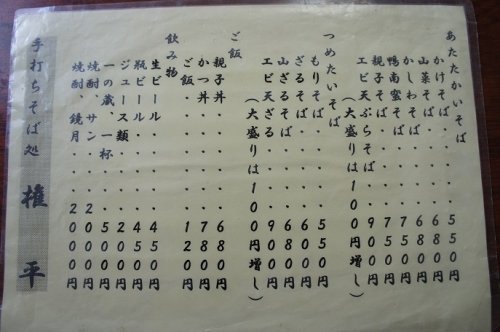 あたたかいそば
かけそば・・・・550円
山菜そば・・・・680円
かしわそば・・・680円
鴨南蛮そば・・・750円
親子そば・・・・750円
エビ天ぷらそば・900円
(大盛りは100円増し)
つめたいそば
もりそば・・・・550円
ざるそば・・・・600円
山ざるそば・・・680円
エビ天ざる・・・900円
(大盛りは100円増し)
ご飯
親子丼・・・・・680円
かつ丼・・・・・780円
ご飯・・・・・・120円
飲み物
生ビール・・・・450円
瓶ビール・・・・450円
ジュース類・・・200円
一の蔵、一杯・・500円
焼酎、サン・・2000円
焼酎、鏡月・・2000円
手打ちそば処 権平